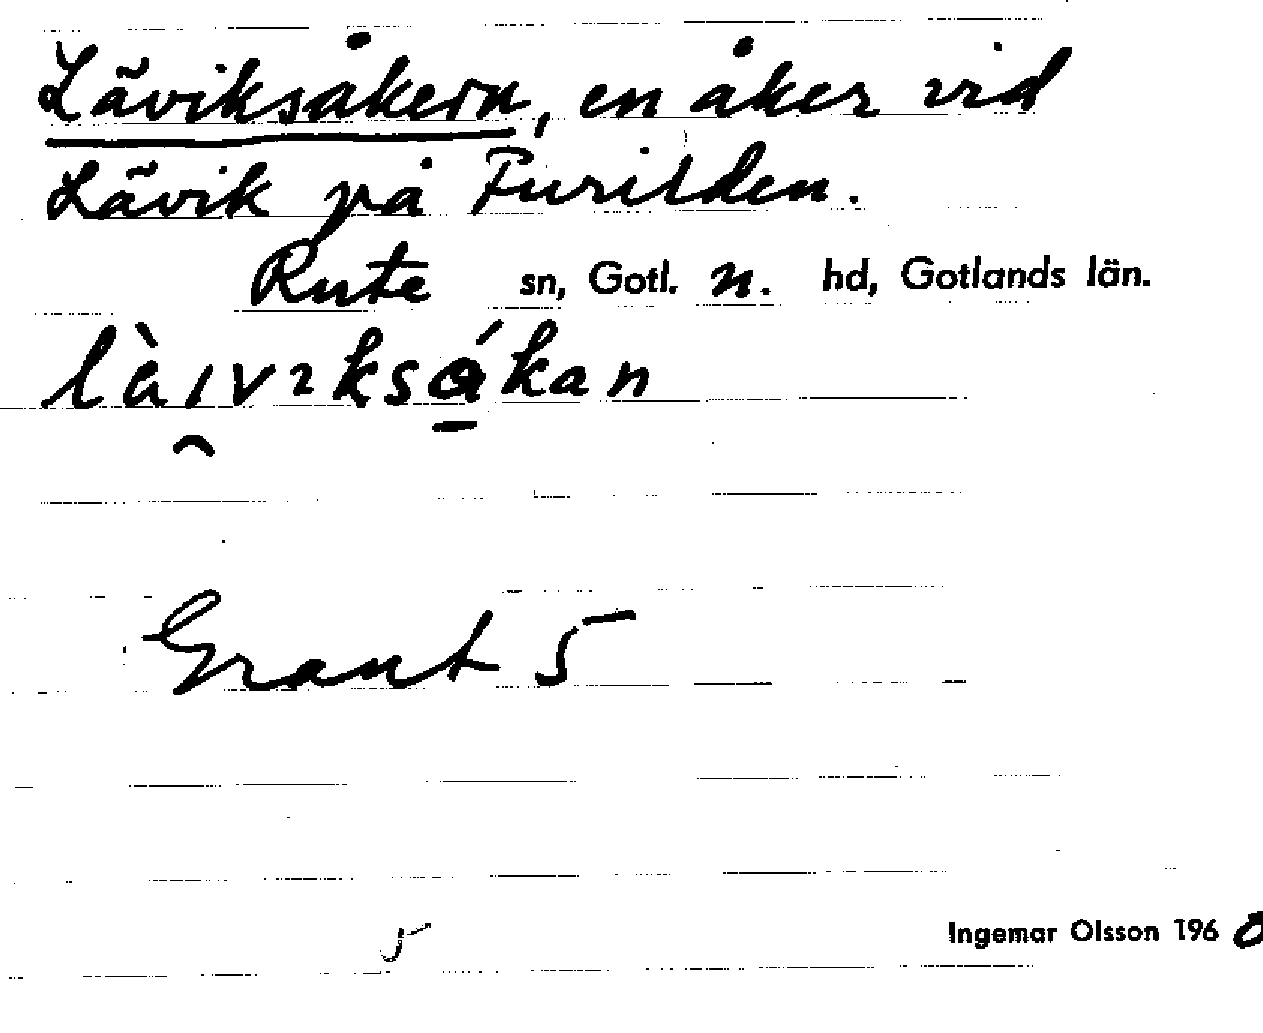 Läviksåkern, en åker vid
Lävik på Furilden.
Rute sn, Gotl. n. hd, Gotlands län.
làıvɿksákan
Grant 5
5
Ingemar Olsson 1960